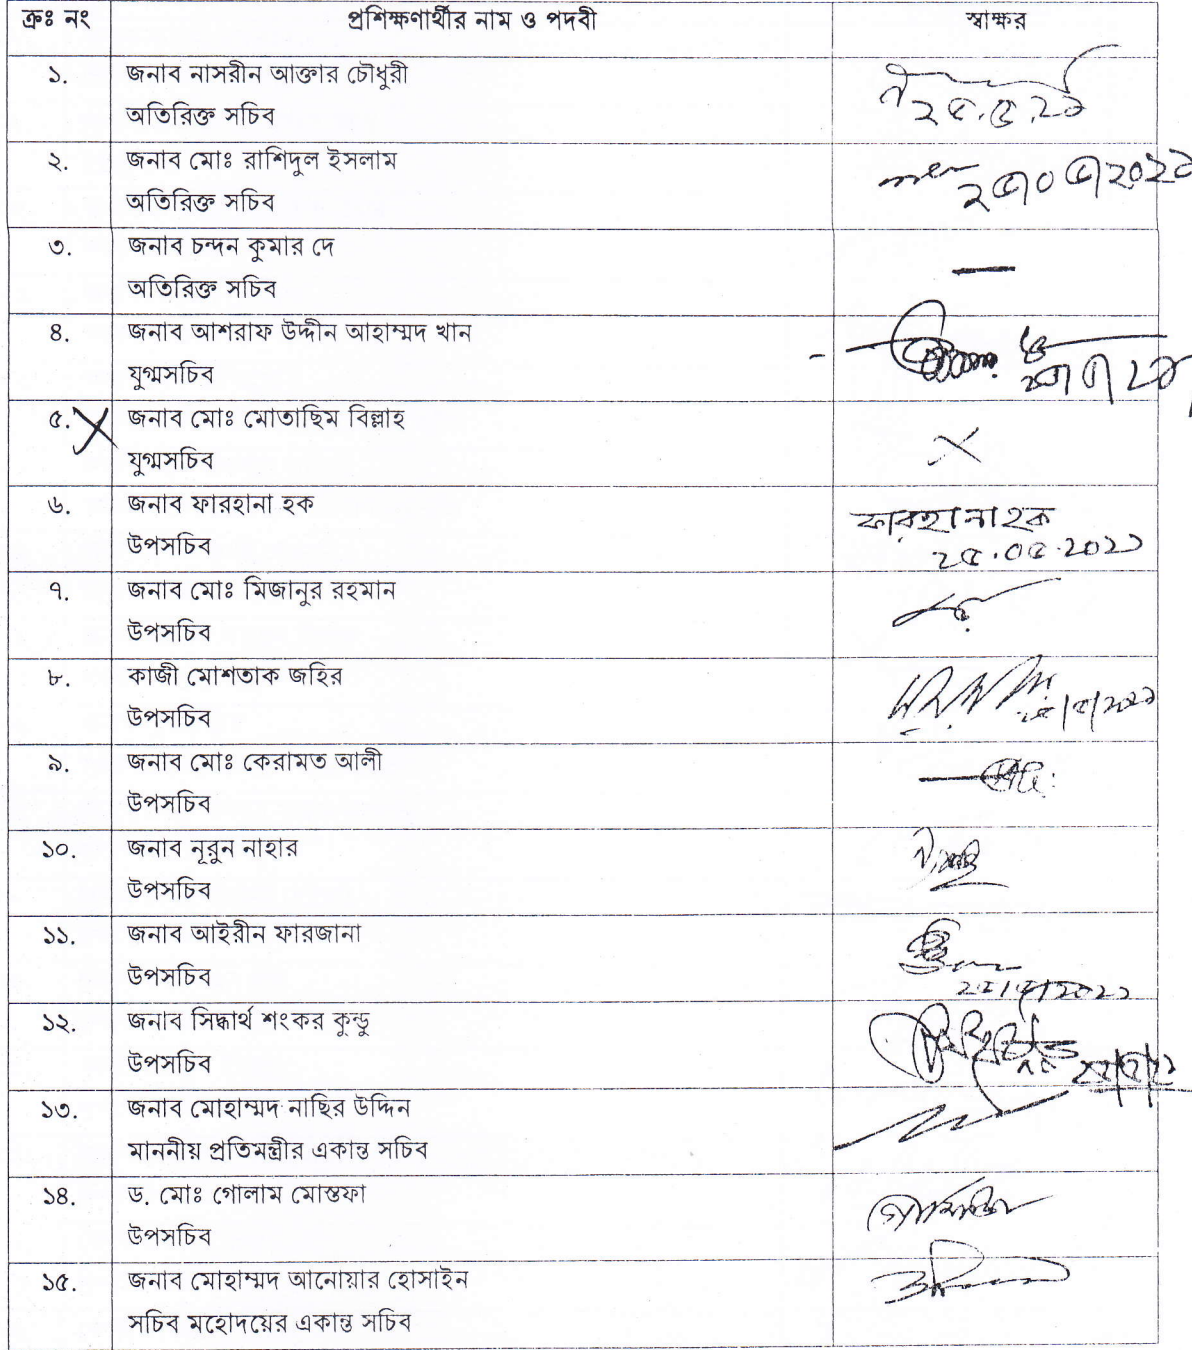 ক্রঃ নং প্রশিক্ষণার্থীর নাম ও পদবী স্বাক্ষর
১. জনাব নাসরীন আক্তার চৌধুরী
অতিরিক্ত সচিব
২৫.৫.২১
২. জনাব মোঃ রাশিদুল ইসলাম
অতিরিক্ত সচিব
৩. জনাব চন্দন কুমার দে
অতিরিক্ত সচিব
৪. জনাব আশরাফ উদ্দীন আহাম্মদ খান
যুগ্মসচিব
৫. জনাব মোঃ মোতাছিম বিল্লাহ
যুগ্মসচিব
৬. জনাব ফারহানা হক ফারহানা হক
উপসচিব ২৫.০৫.২০২১
৭. জনাব মোঃ মিজানুর রহমান
উপসচিব
৮. কাজী মোশতাক জহির
উপসচিব
৯. জনাব মোঃ কেরামত আলী
উপসচিব
১০. জনাব নূরুন নাহার
উপসচিব
১১. জনাব আইরীন ফারজানা
উপসচিব
২৫/৫/২০২১
১২. জনাব সিদ্ধার্থ শংকর কুন্ডু
উপসচিব
১৩. জনাব মোহাম্মদ নাছির উদ্দিন
মাননীয় প্রতিমন্ত্রীর একান্ত সচিব
১৪. ড. মোঃ গোলাম মোস্তফা
উপসচিব
১৫. জনাব মোহাম্মদ আনোয়ার হোসাইন
সচিব মহোদয়ের একান্ত সচিব